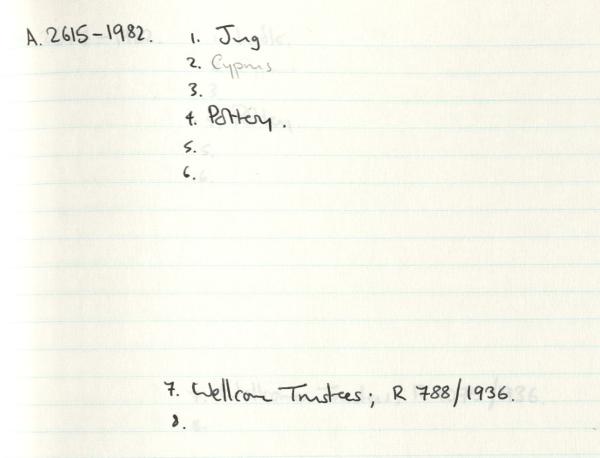 A. 2615-1982. 1. Jug
2. Cyprus
3.
4. Pottery.
5.
6.
7. Wellcome Trustees; R 788/1936.
8.